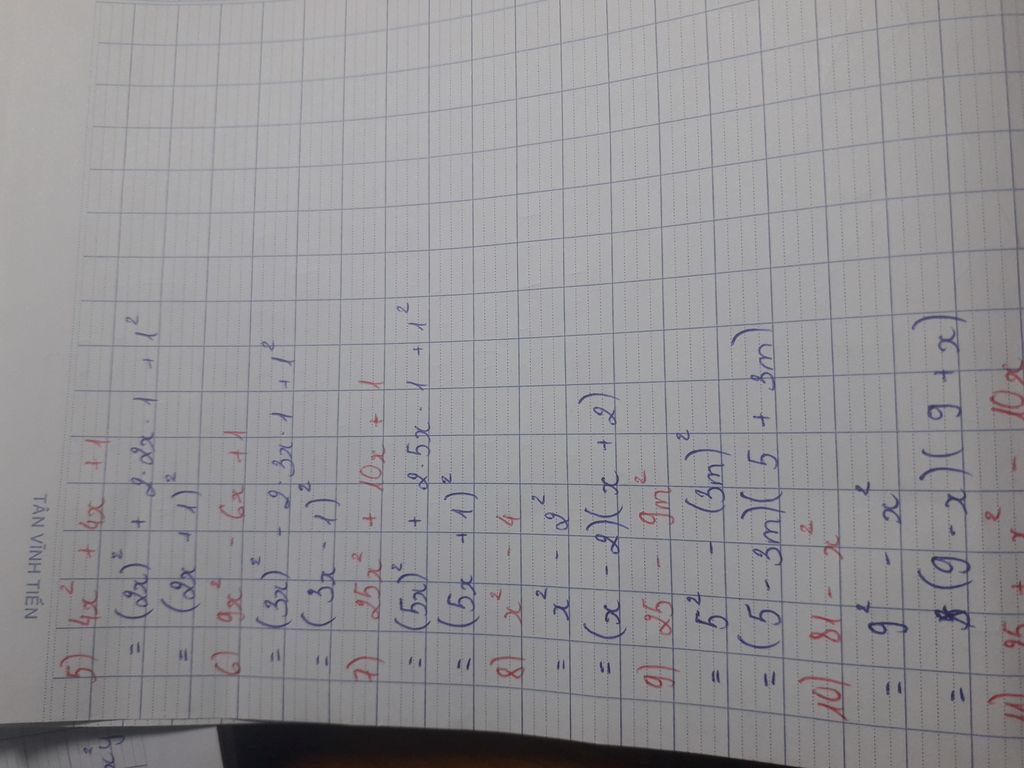 TÂN VĨNH TIẾN
5) 4x² + 4x + 1
= (2x)² + 2·2x·1 + 1²
= (2x + 1)²
6) 9x² - 6x + 1
= (3x)² - 2·3x·1 + 1²
= (3x - 1)²
7) 25x² + 10x + 1
= (5x)² + 2·5x·1 + 1²
= (5x + 1)²
8) x² - 4
= x² - 2²
= (x - 2)(x + 2)
9) 25 - 9m²
= 5² - (3m)²
= (5 - 3m)(5 + 3m)
10) 81 - x²
= 9² - x²
= (9 - x)(9 + x)
11) 25 + x² - 10x